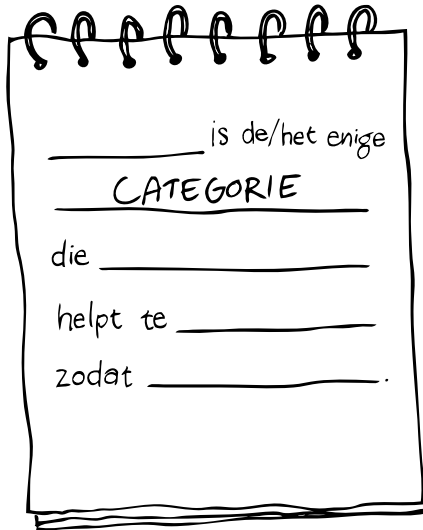 __________ is de/het enige
CATEGORIE
die __________
helpt te __________
zodat __________.